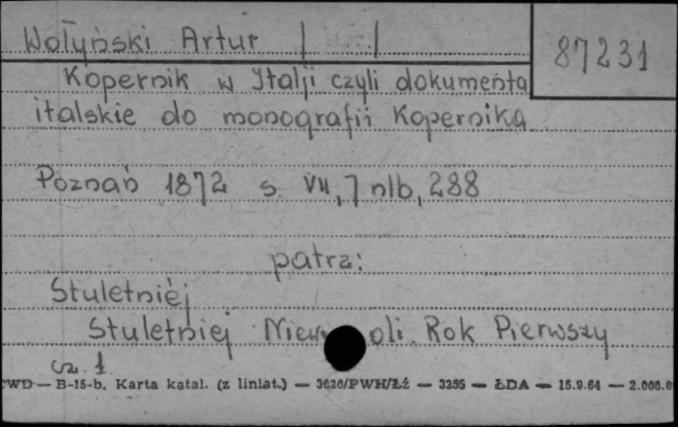 Wołyński Artur
87231
Kopernik w Italji czyli dokumenta
italskie do monografii Kopernika
Poznań 1872 s. VII, 7 nlb, 288
patrz:
Stuletniej
Stuletniej Rok Pierwszy
cz. 1
PWD — B-15-b. Karta katal. (z liniat.) — 3626/PWH/Łź — 3255 — ŁDA — 15.9.64 — 2.000.0